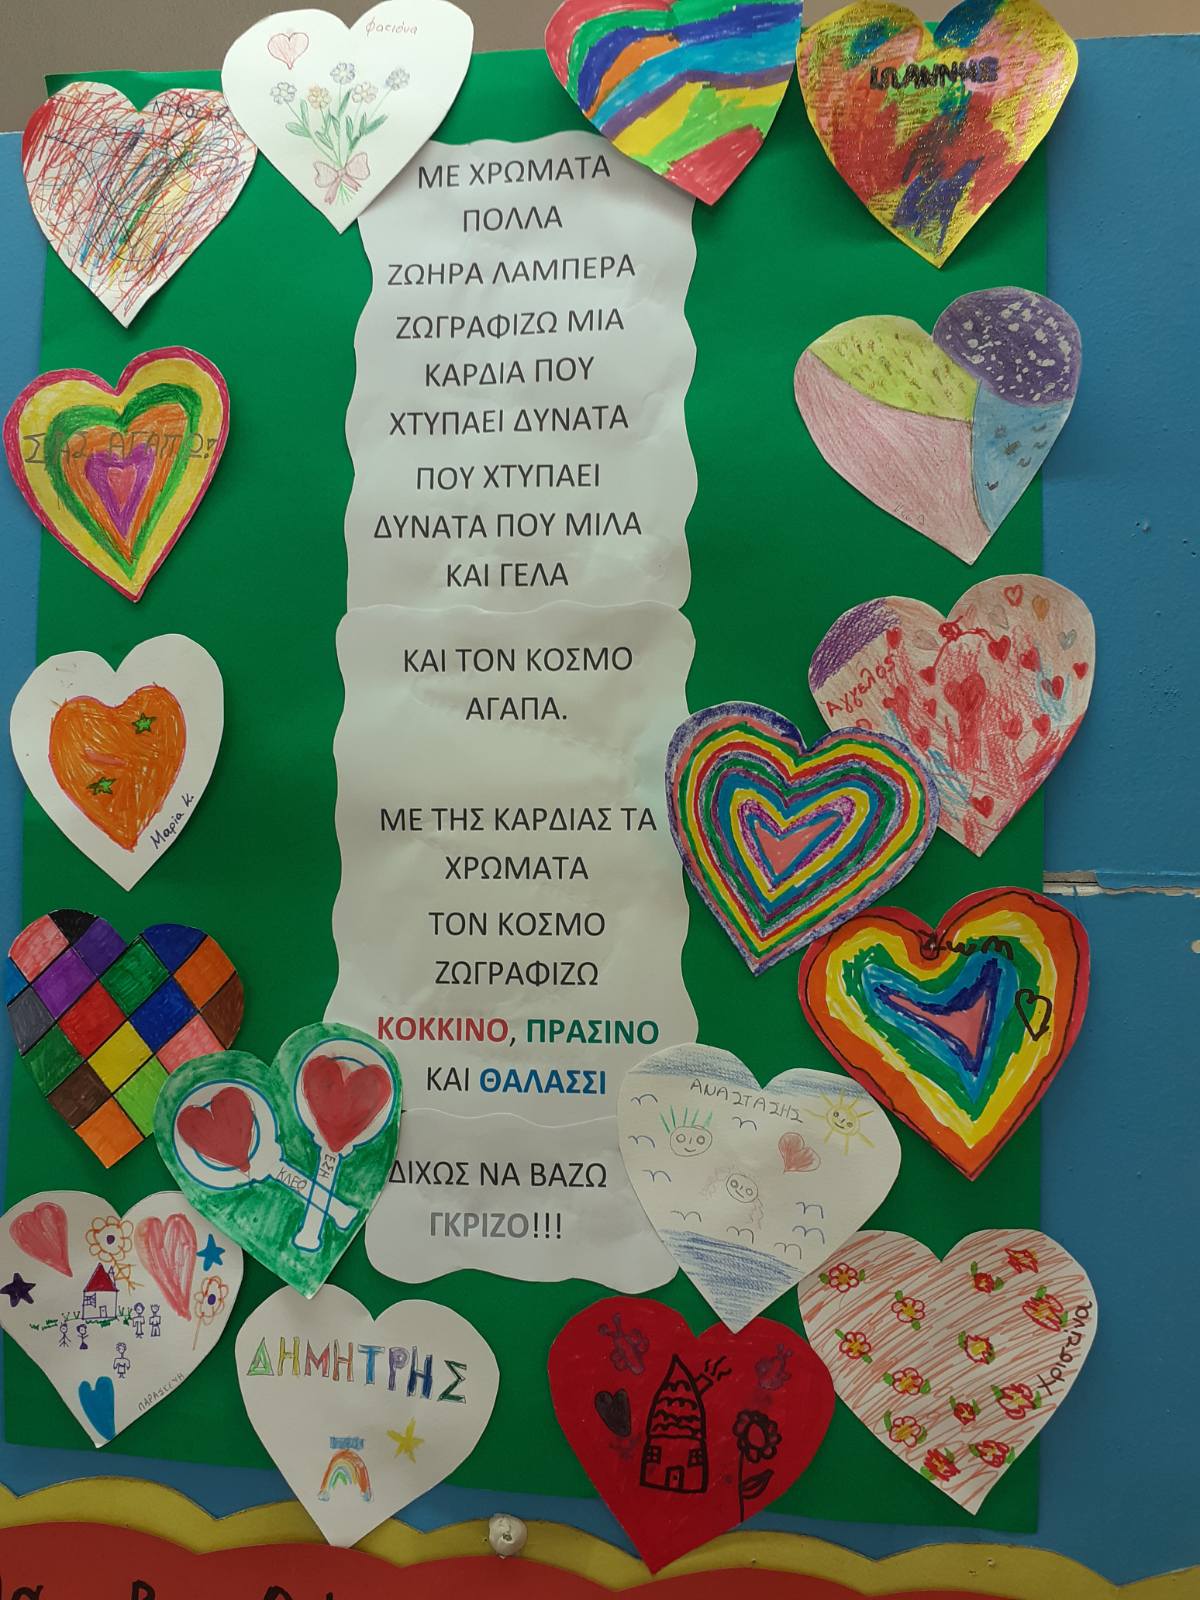 ΝΙΚΟΣ Κ
φαειόνα
ΙΩΑΝΝΗΣ
ΜΕ ΧΡΩΜΑΤΑ
ΠΟΛΛΑ
ΖΩΗΡΑ ΛΑΜΠΕΡΑ
ΖΩΓΡΑΦΙΖΩ ΜΙΑ
ΚΑΡΔΙΑ ΠΟΥ
ΧΤΥΠΑΕΙ ΔΥΝΑΤΑ
ΠΟΥ ΧΤΥΠΑΕΙ
ΔΥΝΑΤΑ ΠΟΥ ΜΙΛΑ
ΚΑΙ ΓΕΛΑ
ΚΑΙ ΤΟΝ ΚΟΣΜΟ
ΑΓΑΠΑ.
ΜΕ ΤΗΣ ΚΑΡΔΙΑΣ ΤΑ
ΧΡΩΜΑΤΑ
ΤΟΝ ΚΟΣΜΟ
ΖΩΓΡΑΦΙΖΩ
ΚΟΚΚΙΝΟ, ΠΡΑΣΙΝΟ
ΚΑΙ ΘΑΛΑΣΣΙ
ΔΙΧΩΣ ΝΑ ΒΑΖΩ
ΓΚΡΙΖΟ!!!
ΣΑΣ ΑΓΑΠΩ!
Άγγελος
Μαρία Κ.
ΚΛΕΟ
ΕΣΗ
ΑΝΑΣΤΑΣΗΣ
ΠΑΡΑΣΚΕΥΗ
ΔΗΜΗΤΡΗΣ
Χριστίνα